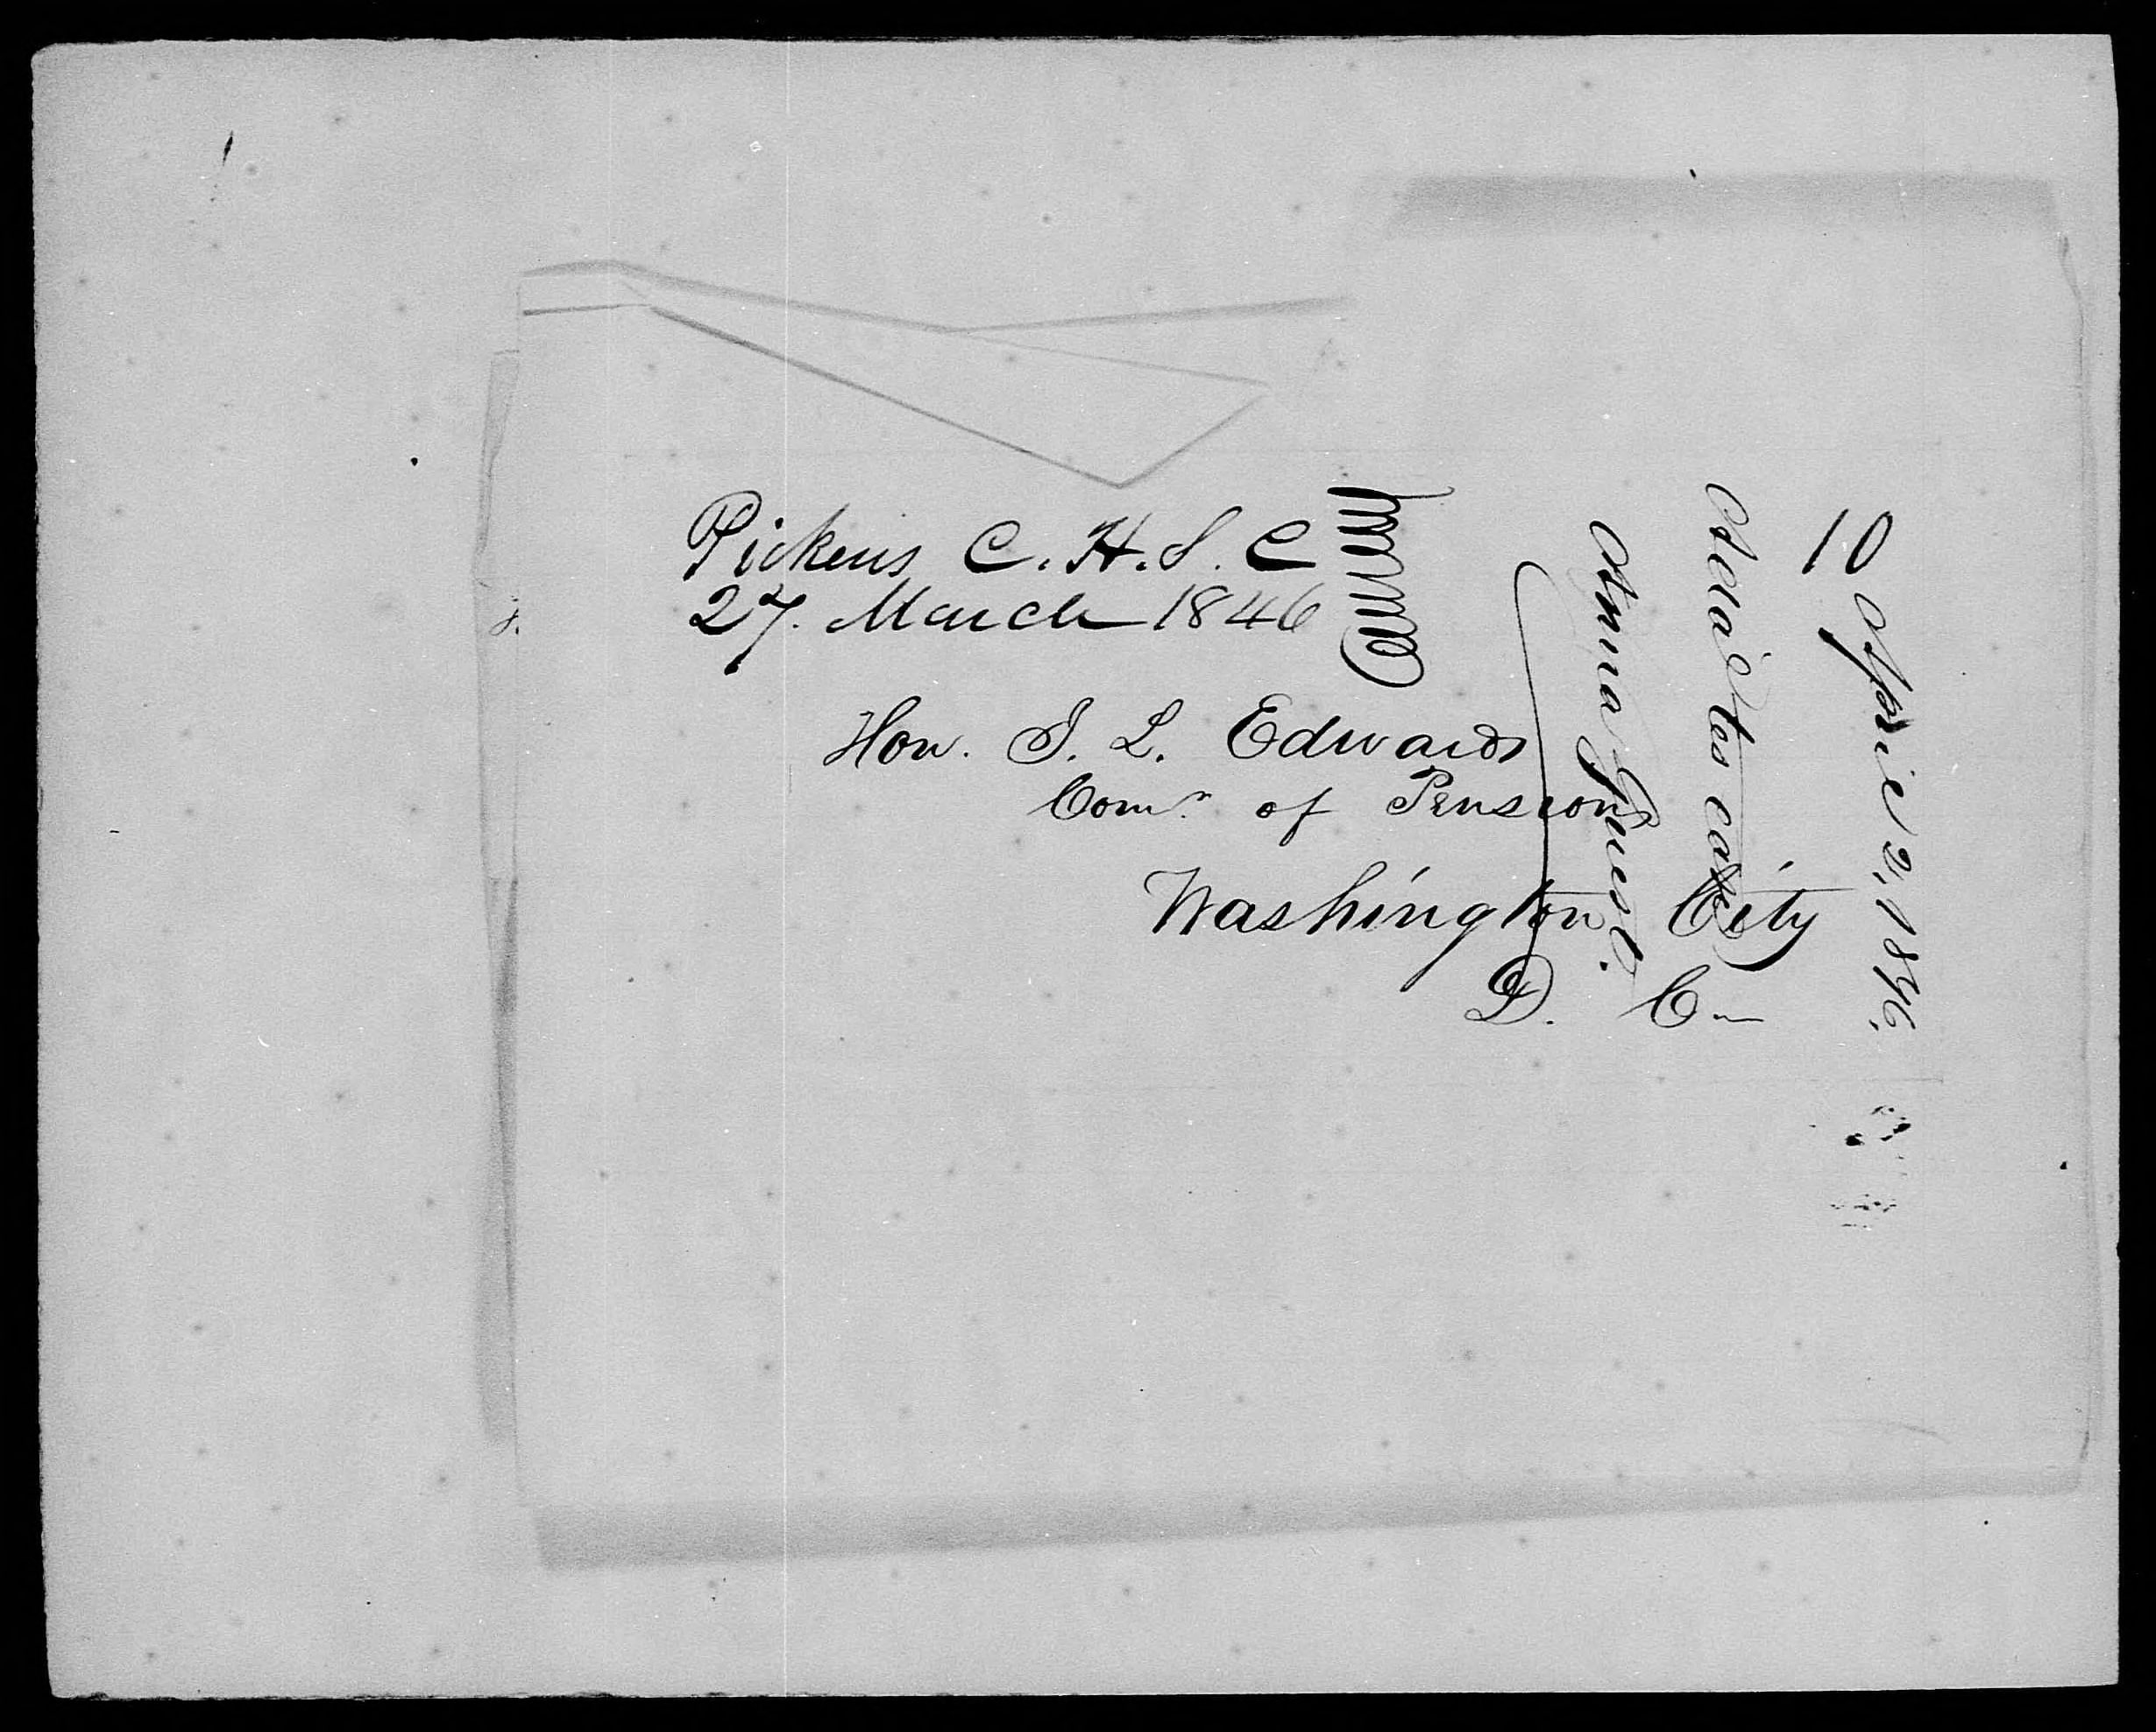 Pickens C. H. S. C
27. March 1846
10
Hon. J. L. Edwards
Comr. of Pensions
Washington City
D. C
April 2, 1846.
Add to case
Anna Guest.